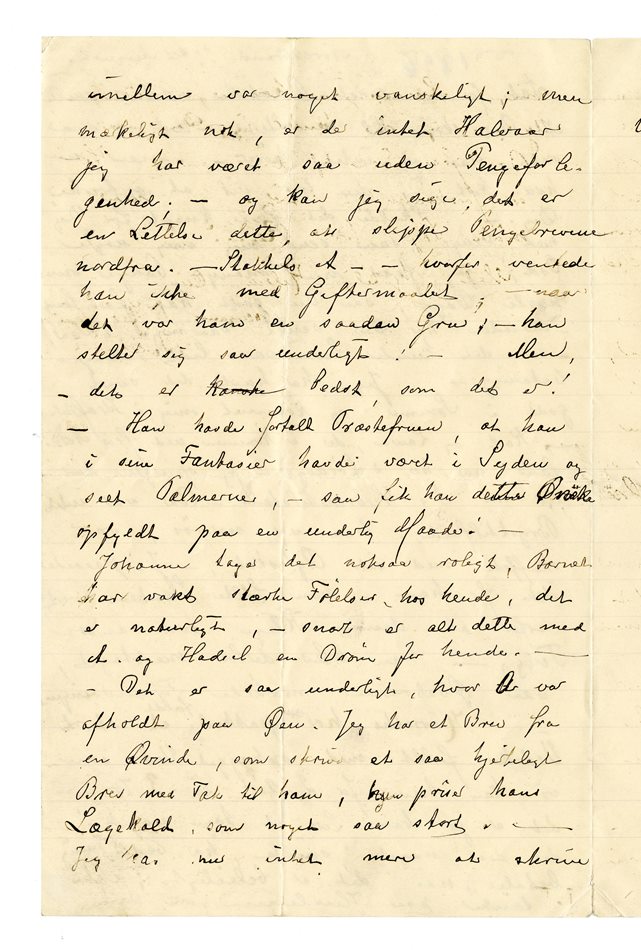 imellem var noget vanskeligt; men
mækeligt nok, er der intet Halvaar
jeg har været saa uden Pengeforle-
genhed. — og kan jeg sige, det er
en Lettelse dette, at slippe Pengebrevene
nordfra. — Stakkels A — — hvorfor ventede
han ikke med Giftermaalet, — naar
det var ham en saadan Gru; — han
stelte sig saa underligt! — Men,
— det er kanske bedst, som det er!
— Han havde fortalt Præstefruen, at han
i sine Fantasier havde været i Syden og
seet Palmerne, — saa fik han dette Ønske
opfyldt paa en underlig Maade! —
Johanne tager det noksaa roligt, Barnet
har vakt stærke Følelser hos hende, det
er naturligt, — snart er alt dette med
A. og Hadsel en Drøm for hende. —
— Det er saa underligt, hvor A var
afholdt paa Øen. Jeg har et Brev fra
en Qvinde, som skrive et saa hjerteligt
Brev med Tak til ham, hun priser hans
Lægekald, som noget saa stort. —
Jeg har nu intet mere at skrive